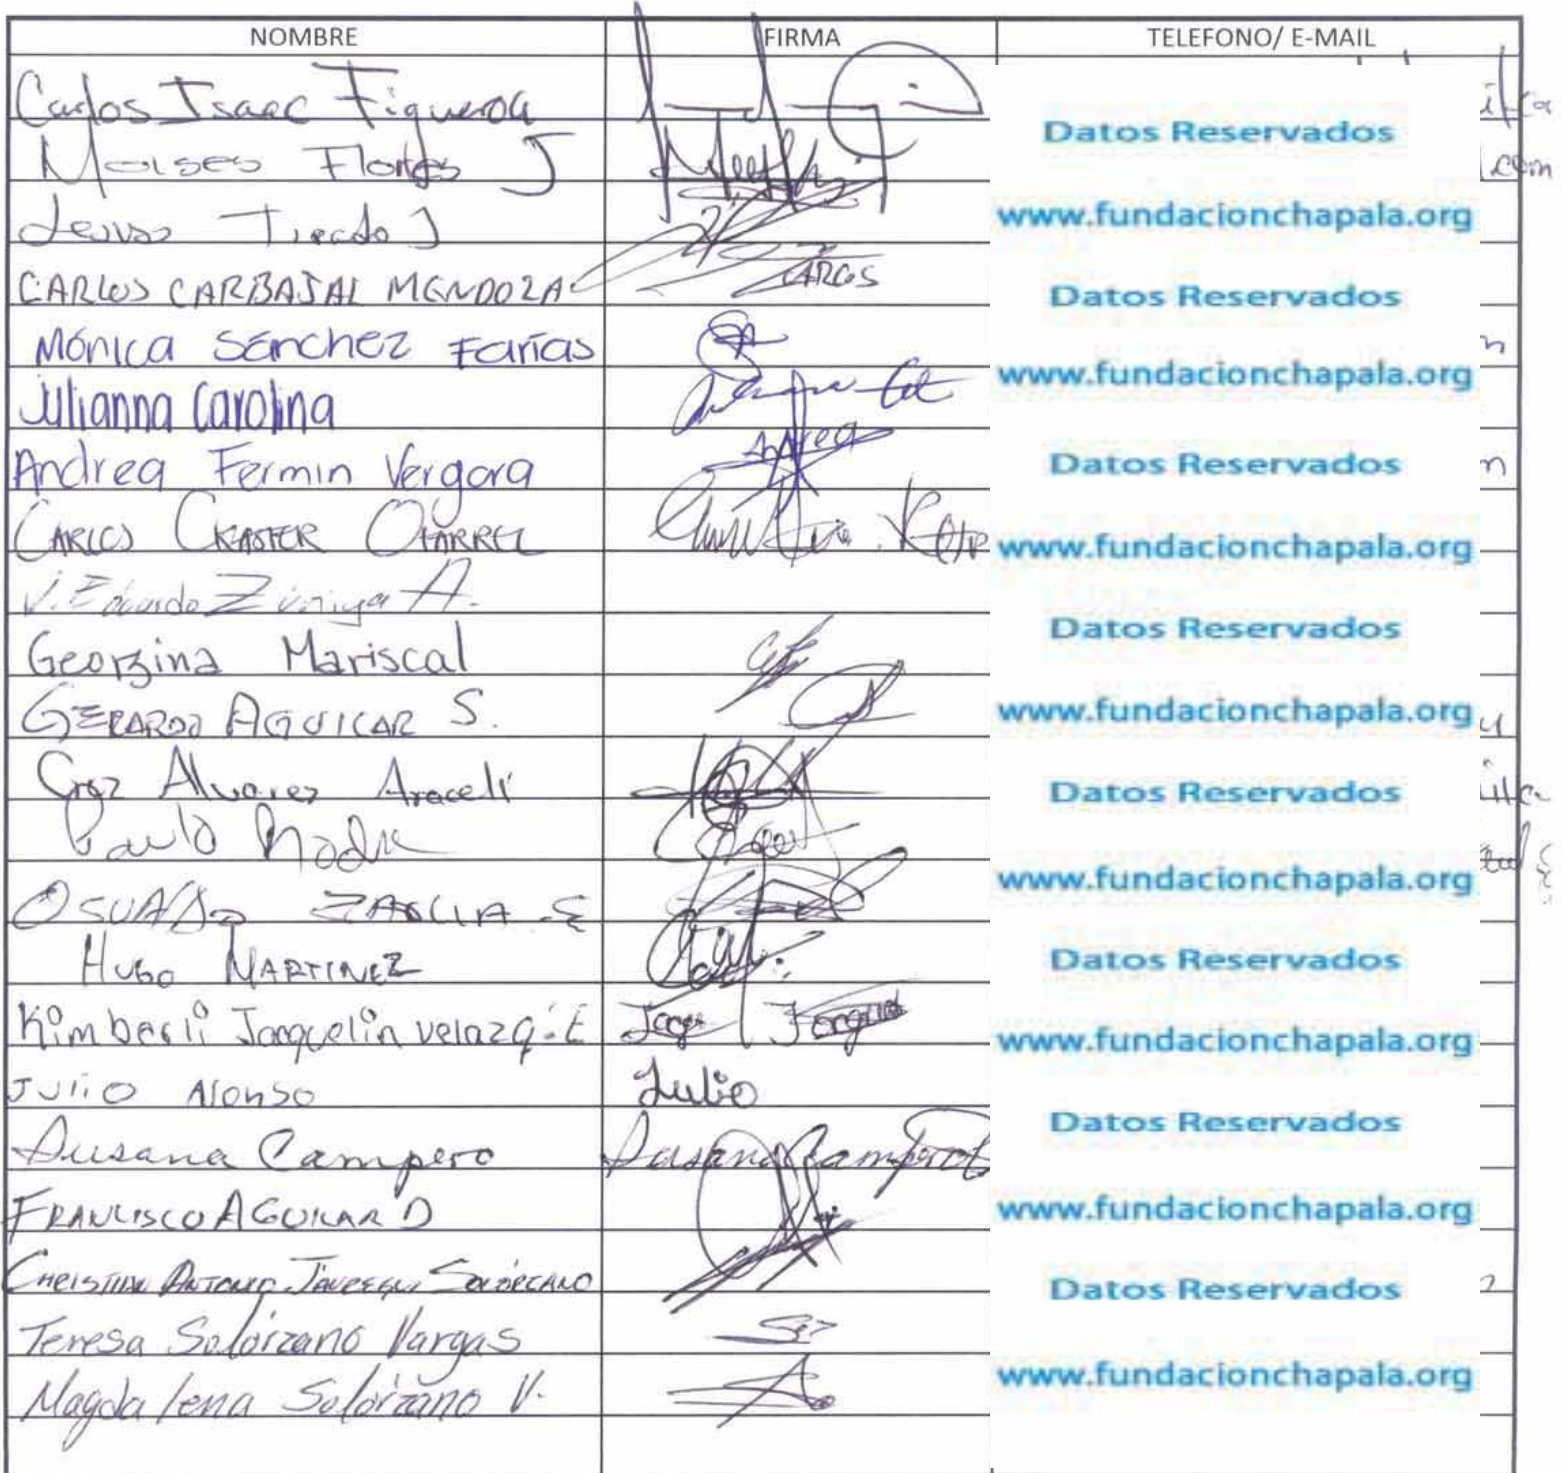 NOMBRE FIRMA TELEFONO/ E-MAIL
Carlos Isaac Figueroa
Datos Reservados
Moises Flores J
.com
Tirado J
www.fundacionchapala.org
CARLOS CARBAJAL MENDOZA
Datos Reservados
Mónica Sánchez Farías
www.fundacionchapala.org
Julianna Carolina
Andrea Fermin Vergara Andrea
Datos Reservados
CARLOS CRASTER OFARREL
www.fundacionchapala.org
V. Eduardo Zúniga A.
Georgina Mariscal
Datos Reservados
GERARDO AGUILAR S.
www.fundacionchapala.org
Cruz Alvarez Araceli
Datos Reservados
Paulo
OSUALDO
www.fundacionchapala.org
HUGO MARTINEZ
Datos Reservados
Kimberli Jaquelin velazq. E
www.fundacionchapala.org
Julio Alonso Julio
Susana Campero Susana Campero
Datos Reservados
FRANCISCO AGUILAR D
www.fundacionchapala.org
CHRISTIAN ANTONIO JAUREGUI SOLÓRZANO
Datos Reservados
Teresa Solórzano Vargas
Magdalena Solórzano V.
www.fundacionchapala.org